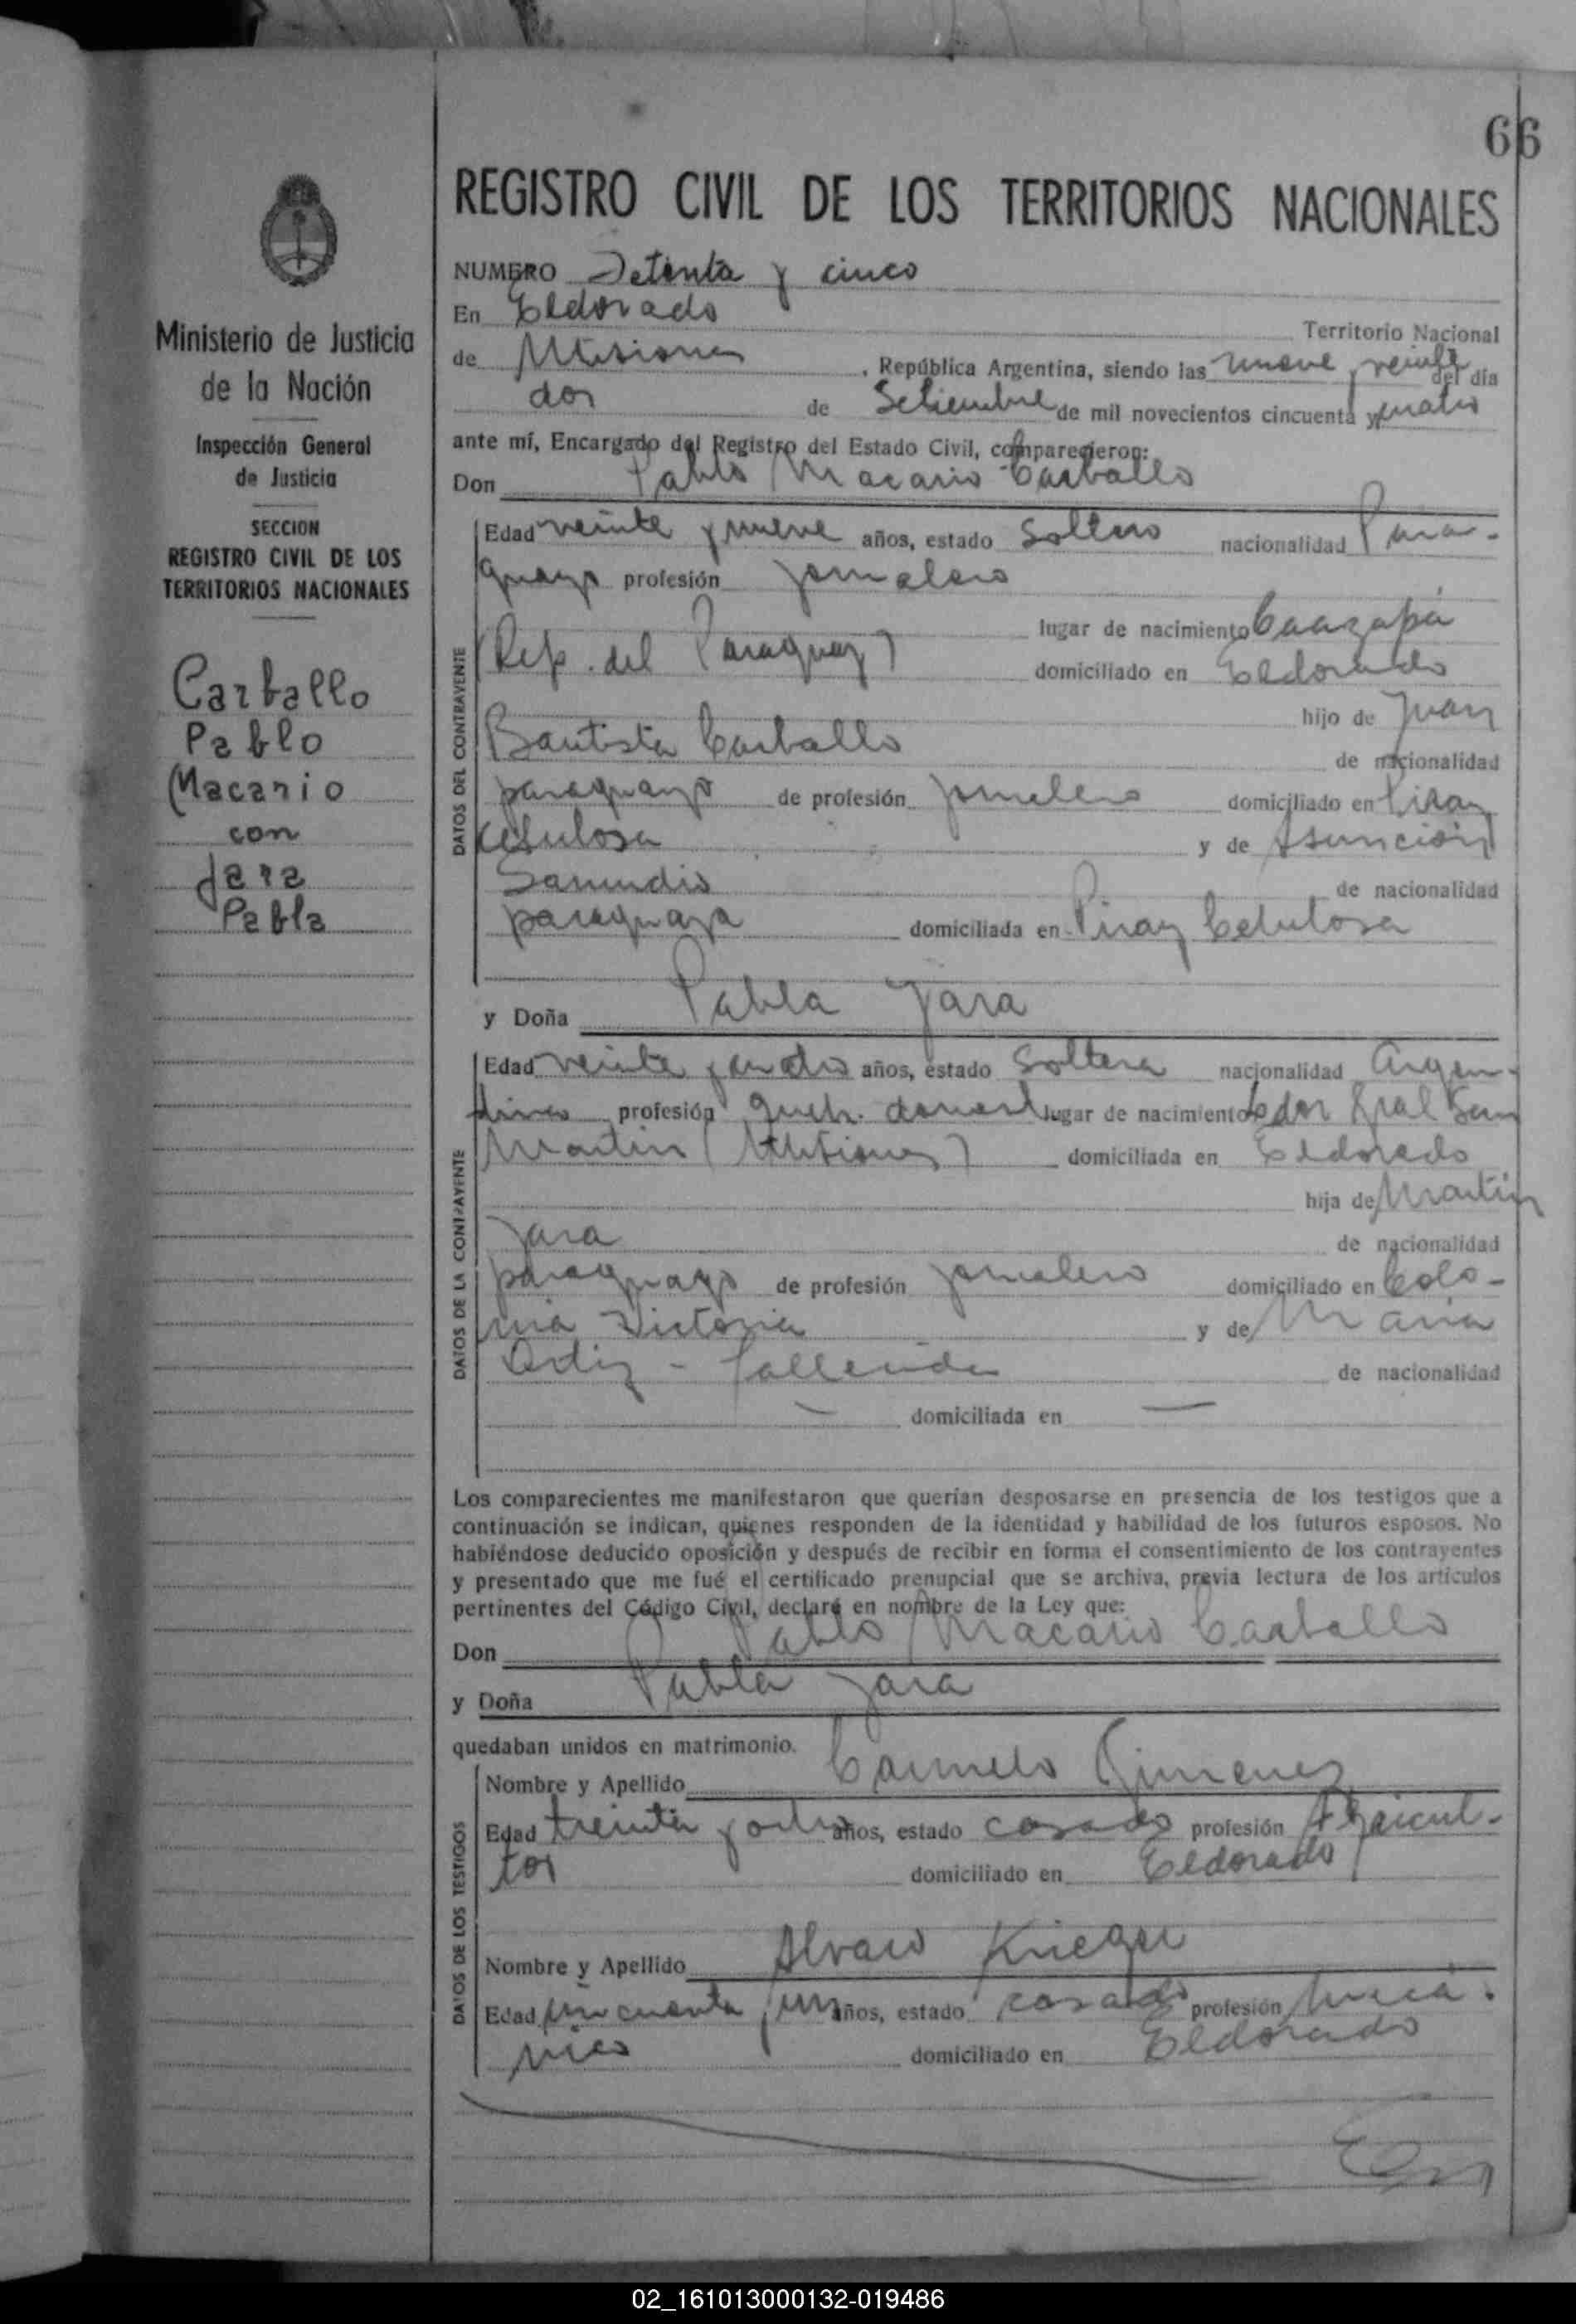 66
REGISTRO CIVIL DE LOS TERRITORIOS NACIONALES
Ministerio de Justicia
de la Nación
Inspección General
de Justicia
SECCION
REGISTRO CIVIL DE LOS
TERRITORIOS NACIONALES
Carballo
Pablo
Macario
con
Jara
Pabla
NUMERO Setenta y cinco
En Eldorado
Territorio Nacional
de Misiones, República Argentina, siendo las nueve, veinte del día
dos de Setiembre de mil novecientos cincuenta y cuatro
ante mí, Encargado del Registro del Estado Civil, comparecieron:
Don Pablo Macario Carballo
DATOS DEL CONTRAYENTE
Edad veinte y nueve años, estado Soltero nacionalidad Para-
guayo profesión jornalero
lugar de nacimiento Caazapá
(Rep. del Paraguay) domiciliado en Eldorado
hijo de Juan
Bautista Carballo de nacionalidad
paraguayo de profesión jornalero domiciliado en Piray
Celulosa y de Asunción
Samudio de nacionalidad
paraguaya domiciliada en Piray Celulosa
y Doña Pabla Jara
DATOS DE LA CONTRAYENTE
Edad veinte y cuatro años, estado Soltera nacionalidad Argen-
tina profesión queh. domest lugar de nacimiento Ldor Gral San
Martin (Misiones) domiciliada en Eldorado
hija de Martin
Jara de nacionalidad
paraguayo de profesión jornalero domiciliado en Colo-
nia Victoria y de Maria
Ortiz - fallecida de nacionalidad
— domiciliada en —
Los comparecientes me manifestaron que querían desposarse en presencia de los testigos que a
continuación se indican, quienes responden de la identidad y habilidad de los futuros esposos. No
habiéndose deducido oposición y después de recibir en forma el consentimiento de los contrayentes
y presentado que me fué el certificado prenupcial que se archiva, previa lectura de los artículos
pertinentes del Código Civil, declaré en nombre de la Ley que:
Don Pablo Macario Carballo
y Doña Pabla Jara
quedaban unidos en matrimonio.
DATOS DE LOS TESTIGOS
Nombre y Apellido Carmelo Gimenez
Edad treinta y ocho años, estado casado profesión Agricul-
tor domiciliado en Eldorado
Nombre y Apellido Alvaro Krieger
Edad cincuenta y un años, estado casado profesión mecá-
nico domiciliado en Eldorado
02_161013000132-019486